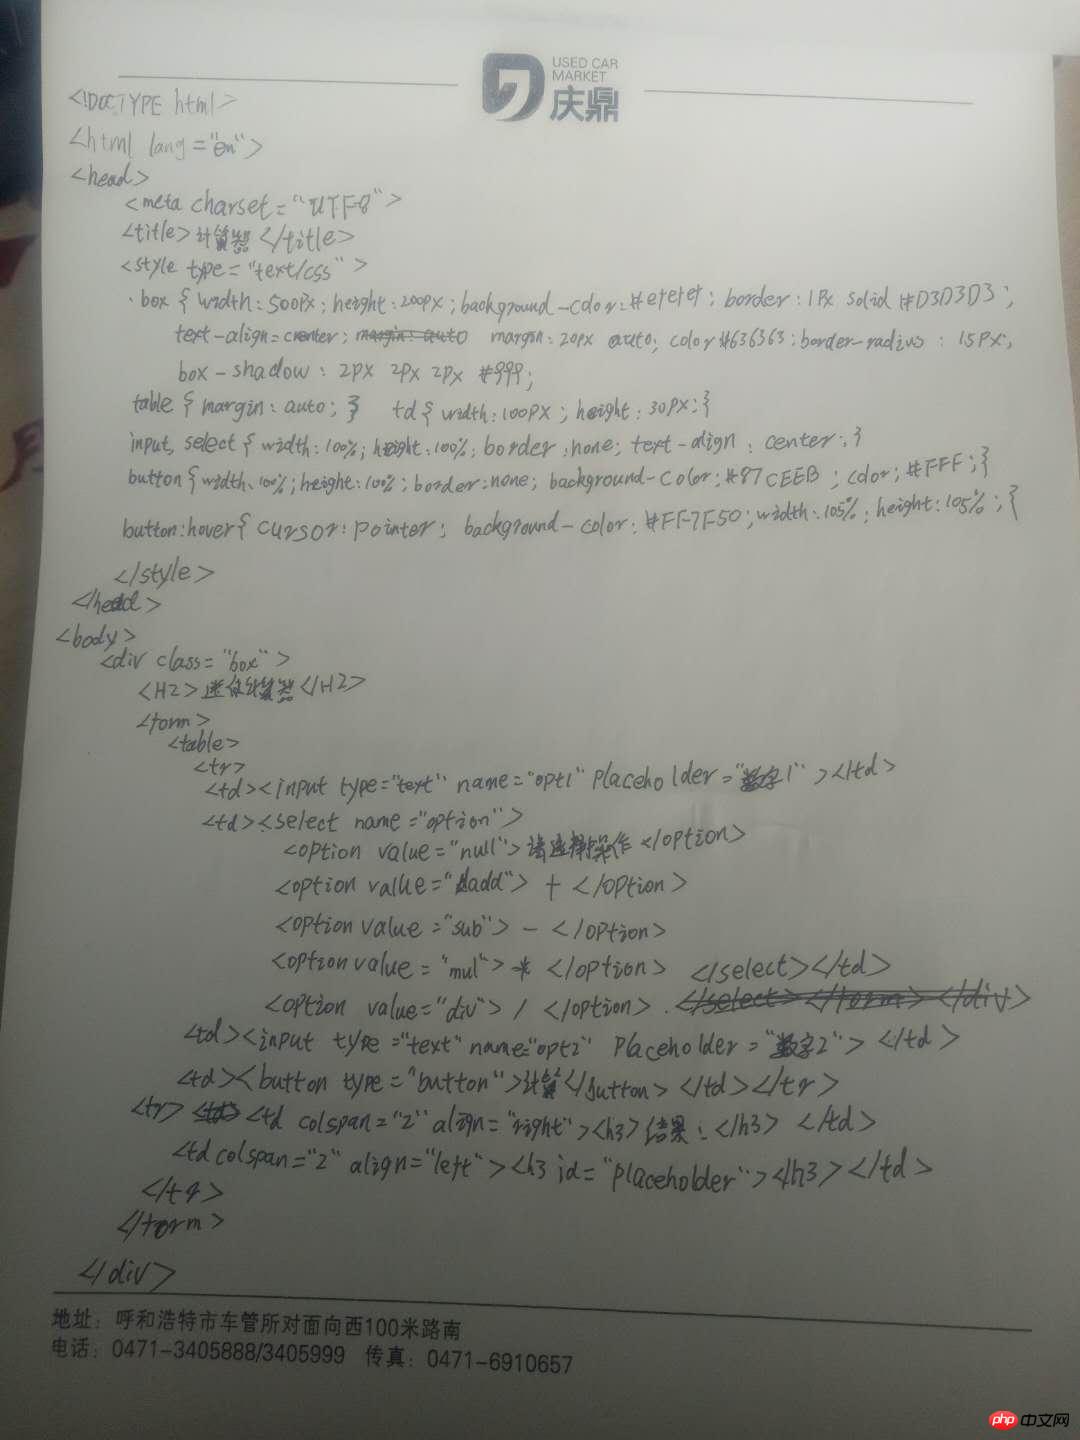 USED CAR
MARKET
庆鼎
<!DOCTYPE html>
<html lang="en">
<head>
<meta charset="UTF-8">
<title>计算器</title>
<style type="text/css">
.box{width:500px;height:200px;background-color:#efefef;border:1px solid #D3D3D3;
text-align=center; margin:auto margin:20px auto;color#636363;border-radius:15px;
box-shadow:2px 2px 2px #999;
table{margin:auto;} td{width:100px;height:30px;}
input,select{width:100%;height:100%;border:none;text-align:center;}
button{width:100%;height:100%;border:none;background-color:#87CEEB;color:#FFF;}
button:hover{cursor:pointer;background-color:#FF7F50;width:105%;height:105%;}
</style>
</head>
<body>
<div class="box">
<H2>迷你计算器</H2>
<form>
<table>
<tr>
<td><input type="text" name="opt1" placeholder="数字1"></td>
<td><select name="option">
<option value="null">请选择操作</option>
<option value="add">+</option>
<option value="sub">-</option>
<option value="mul">*</option> </select></td>
<option value="div">/</option>. </select></form></div>
<td><input type="text" name="opt2" placeholder="数字2"></td>
<td><button type="button">计算</button></td></tr>
<tr> <td> <td colspan="2" align="right"><h3>结果:</h3></td>
<td colspan="2" align="left"><h3 id="placeholder"></h3></td>
</tr>
</form>
</div>
地址：呼和浩特市车管所对面向西100米路南
电话：0471-3405888/3405999 传真：0471-6910657
php 中文网